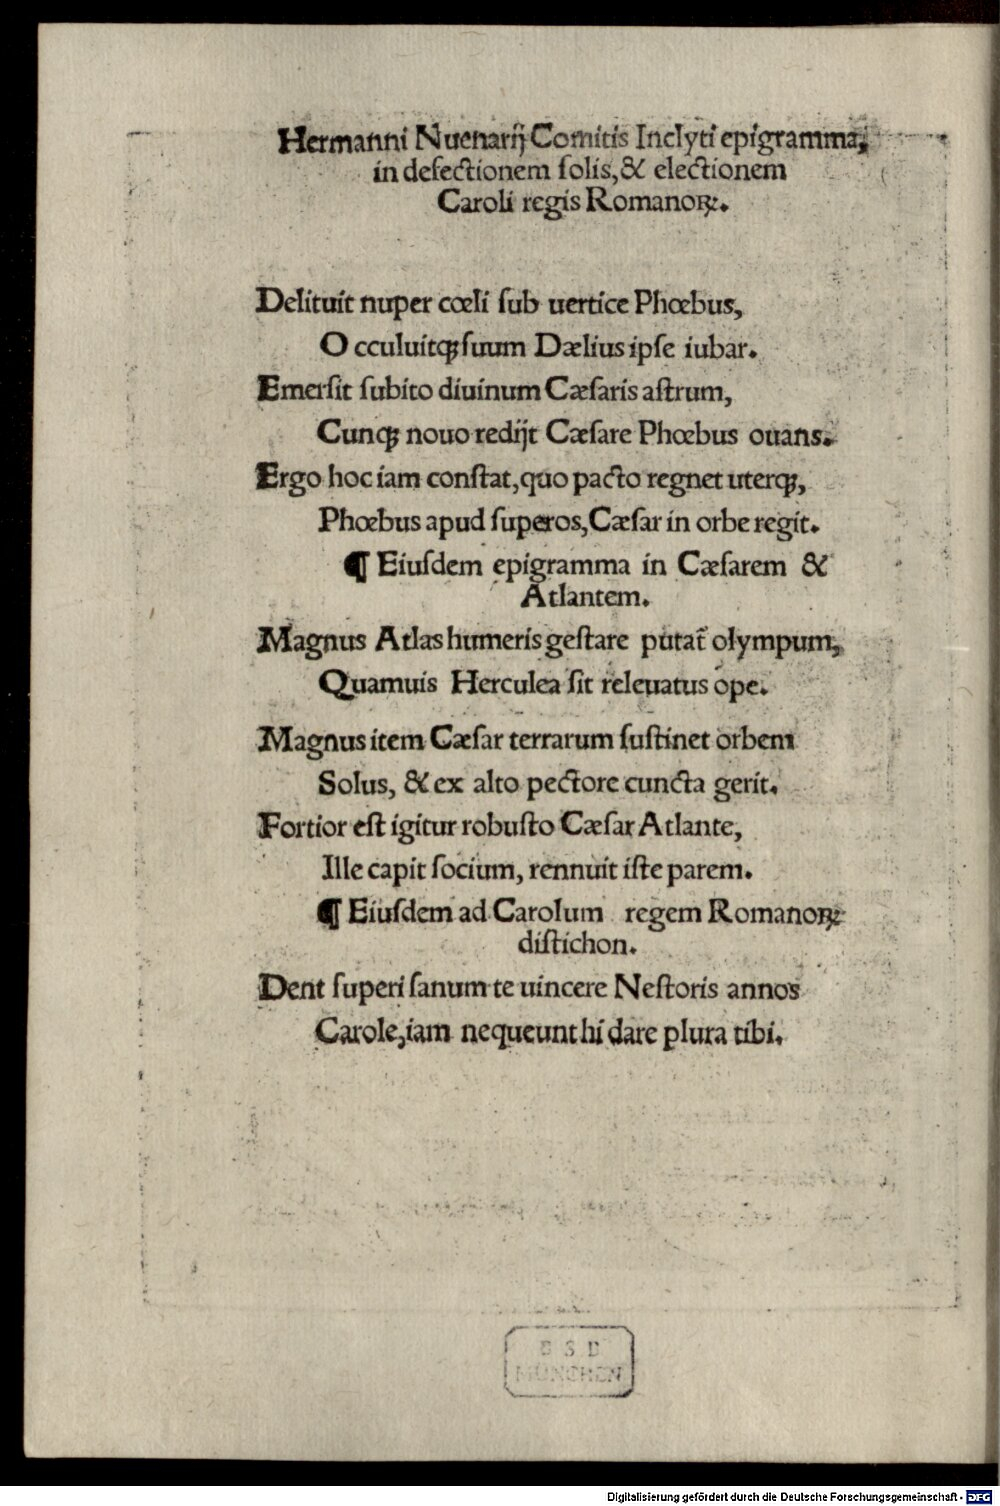 Hermanni Nuenarij Comitis Inclyti epigramma,
in defectionem ſolis,& electionem
Caroli regis Romanoꝝ.
Delituit nuper cœli ſub uertice Phœbus,
O cculuitqꝫ ſuum Dælius ipſe iubar.
Emerſit ſubito diuinum Cæſaris aſtrum,
Cunqꝫ nouo redijt Cæſare Phœbus ouans.
Ergo hoc iam conſtat,quo pacto regnet uterqꝫ,
Phœbus apud ſuperos,Cæſar in orbe regit.
¶ Eiuſdem epigramma in Cæſarem &
Atlantem.
Magnus Atlas humeris geſtare putat̃ olympum,
Quamuis Herculea ſit releuatus ope.
Magnus item Cæſar terrarum ſuſtinet orbem
Solus, & ex alto pectore cuncta gerit.
Fortior eſt igitur robuſto Cæſar Atlante,
Ille capit ſocium, rennuit iſte parem.
¶ Eiuſdem ad Carolum regem Romanoꝝ
diſtichon.
Dent ſuperi ſanum te uincere Neſtoris annos
Carole,iam nequeunt hi dare plura tibi.
B S B
MÜNCHEN
Digitalisierung gefördert durch die Deutsche Forschungsgemeinschaft - DFG